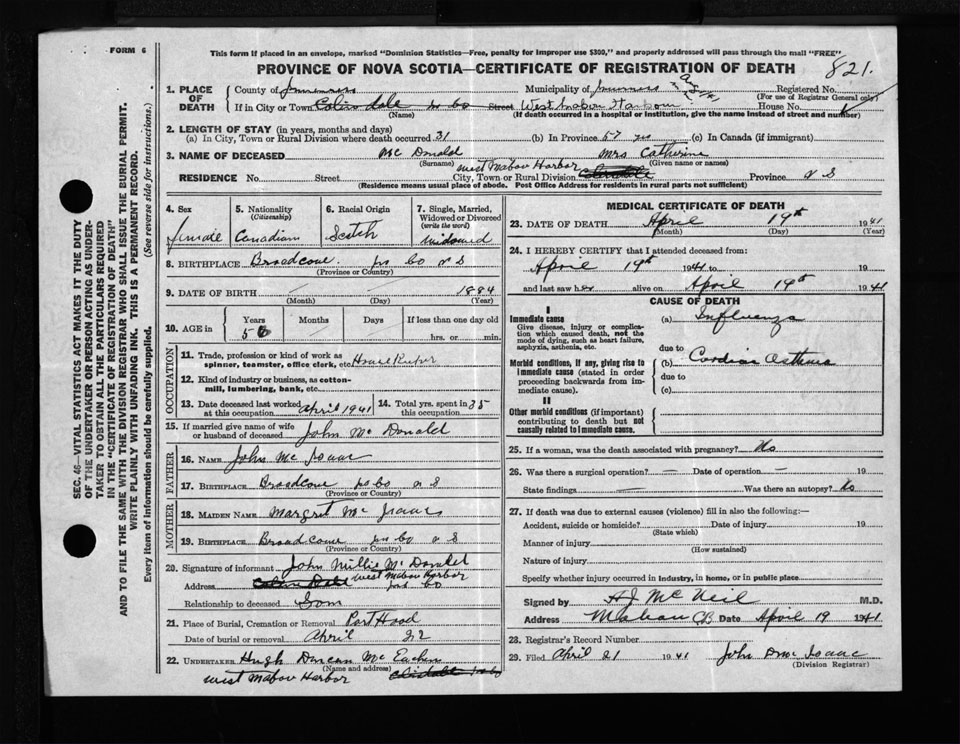 FORM 6
This form if placed in an envelope, marked "Dominion Statistics—Free, penalty for improper use $300," and properly addressed will pass through the mail "FREE"
PROVINCE OF NOVA SCOTIA—CERTIFICATE OF REGISTRATION OF DEATH
821.
1. PLACE OF DEATH
County of Inverness Municipality of Inverness Registered No.
(For use of Registrar General only)
If in City or Town Street West Mabou Harbour House No.
(Name) (If death occurred in a hospital or institution, give the name instead of street and number)
2. LENGTH OF STAY (in years, months and days)
(a) In City, Town or Rural Division where death occurred 31 (b) In Province 57 yrs (c) In Canada (if immigrant)
3. NAME OF DECEASED Mc Donald Mrs Catherine
(Surname) (Given name or names)
RESIDENCE No. Street West Mabou Harbor City, Town or Rural Division Province N S
(Residence means usual place of abode. Post Office Address for residents in rural parts not sufficient)
4. Sex Female
5. Nationality (Citizenship) Canadian
6. Racial Origin Scotch
7. Single, Married, Widowed or Divorced (write the word) Widowed
8. BIRTHPLACE Broadcove Inv Co N S
(Province or Country)
9. DATE OF BIRTH 1884
(Month) (Day) (Year)
10. AGE in Years Months Days If less than one day old
hrs. or min.
OCCUPATION
11. Trade, profession or kind of work as spinner, teamster, office clerk, etc. House Keeper
12. Kind of industry or business, as cotton-mill, lumbering, bank, etc.
13. Date deceased last worked at this occupation April 1941
14. Total yrs. spent in this occupation 35
15. If married give name of wife or husband of deceased John Mc Donald
FATHER
16. NAME John Mc Isaac
17. BIRTHPLACE Broadcove Inv Co N S
(Province or Country)
MOTHER
18. MAIDEN NAME Margret Mc Isaac
19. BIRTHPLACE Broadcove Inv Co N S
(Province or Country)
20. Signature of informant John Willie Mc Donald
Address West Mabou Harbor
Inv Co
Relationship to deceased Son
21. Place of Burial, Cremation or Removal Port Hood
Date of burial or removal April 22
22. UNDERTAKER Hugh Duncan Mc Eachen
(Name and address)
West Mabou Harbor
MEDICAL CERTIFICATE OF DEATH
23. DATE OF DEATH April 19th 1941
(Month) (Day) (Year)
24. I HEREBY CERTIFY that I attended deceased from:
April 19th 1941 to 19
and last saw her alive on April 19th 1941
CAUSE OF DEATH
I
Immediate cause
Give disease, injury or complication which caused death, not the mode of dying, such as heart failure, asphyxia, asthenia, etc.
(a) Influenza
due to
Morbid conditions, if any, giving rise to immediate cause (stated in order proceeding backwards from immediate cause).
(b) Cardiac Asthma
due to
(c)
II
Other morbid conditions (if important) contributing to death but not causally related to immediate cause.
25. If a woman, was the death associated with pregnancy? No
26. Was there a surgical operation? — Date of operation — 19
State findings — Was there an autopsy? No
27. If death was due to external causes (violence) fill in also the following:—
Accident, suicide or homicide? Date of injury 19
(State which)
Manner of injury
(How sustained)
Nature of injury
Specify whether injury occurred in industry, in home, or in public place
Signed by H J Mc Neil M.D.
Address Mabou CB Date April 19 1941
28. Registrar's Record Number
29. Filed April 21 1941 John D Mc Isaac
(Division Registrar)
SEC. 46—VITAL STATISTICS ACT MAKES IT THE DUTY
OF THE UNDERTAKER OR PERSON ACTING AS UNDER-
TAKER TO OBTAIN ALL THE PARTICULARS REQUIRED
IN THE "CERTIFICATE OF REGISTRATION OF DEATH"
AND TO FILE THE SAME WITH THE DIVISION REGISTRAR WHO SHALL ISSUE THE BURIAL PERMIT.
WRITE PLAINLY WITH UNFADING INK. THIS IS A PERMANENT RECORD.
Every item of information should be carefully supplied. (See reverse side for instructions.)